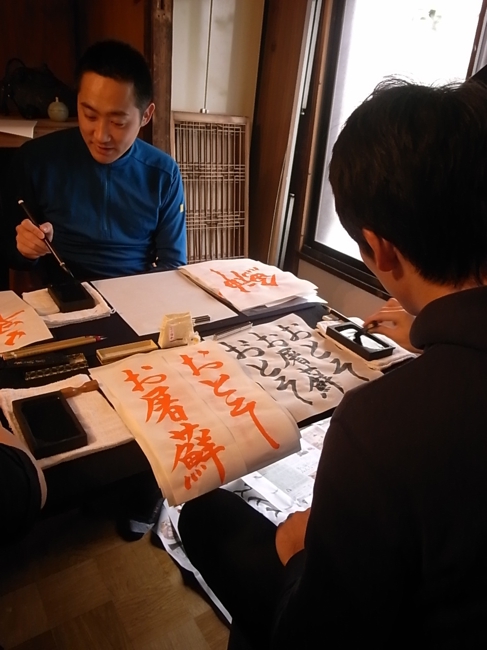 おとそ
お屠蘇
おとそ
お屠蘇
おとそ